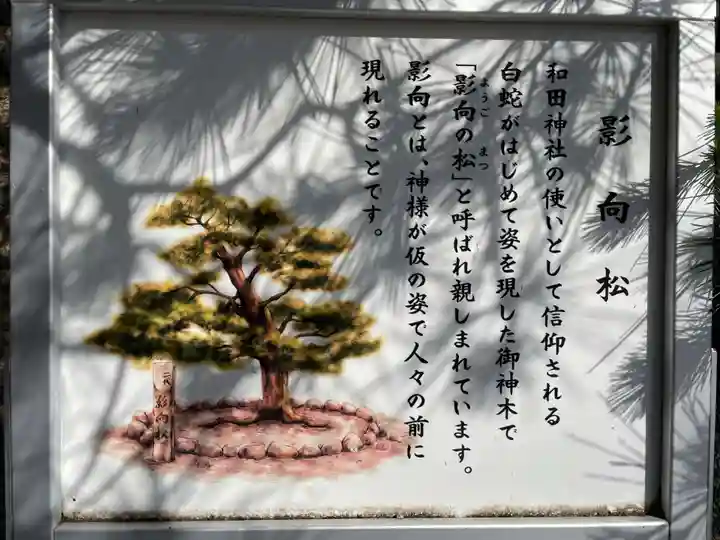 影向松
和田神社の使いとして信仰される
白蛇がはじめて姿を現した御神木で
「影向の松」と呼ばれ親しまれています。
ようご まつ
影向とは、神様が仮の姿で人々の前に
現れることです。
影向松